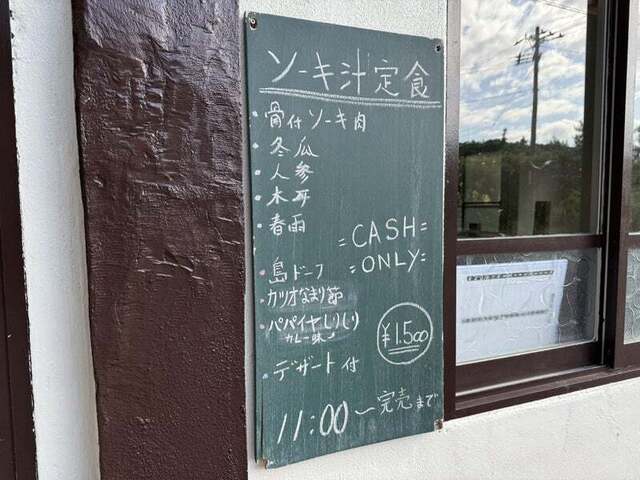 ソーキ汁定食
・骨付ソーキ肉
・冬瓜
・人参
・木耳
・春雨
=CASH=
=ONLY=
・島ドーフ
・カツオなまり節
・パパイヤしりしり
カレー味
¥1.500
・デザート付
11:00〜完売まで